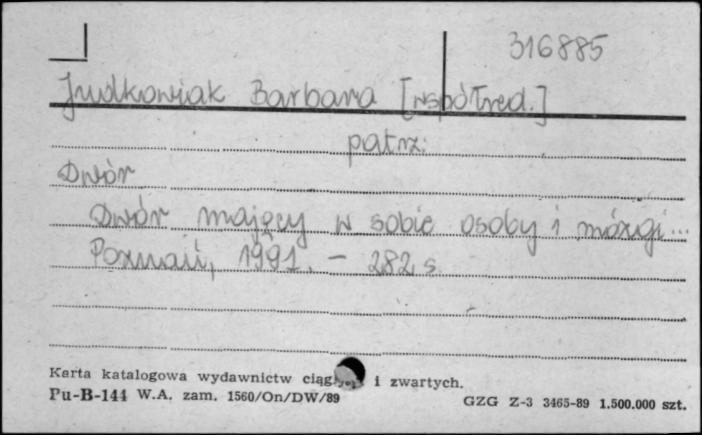 316885
Judkowiak Barbara [współred.]
patrz:
Dwór
Dwór mający w sobie osoby i mózgi...
Poznań, 1991. - 282 s
Karta katalogowa wydawnictw i zwartych.
Pu-B-144 W.A. zam. 1560/On/DW/89
GZG Z-3 3465-89 1.500.000 szt.